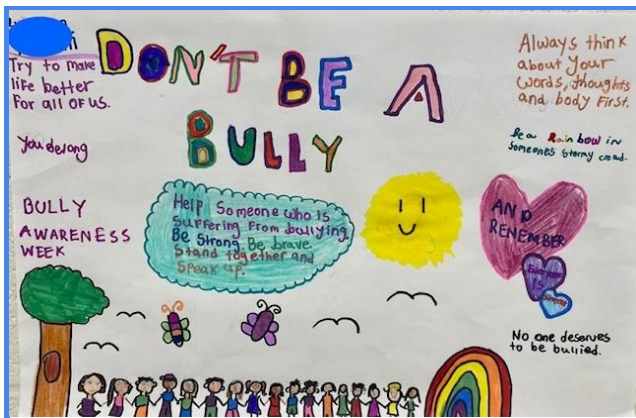 Try to make
life better
For all of us.
You belong
BULLY
AWARENESS
WEEK
DON'T BE A
BULLY
Help Someone who is
suffering from bullying.
Be Strong. Be brave.
Stand together and
speak up.
Always think
about Your
words, thoughts
and body First.
Be a Rainbow in
someones stormy cloud.
AND
REMEMBER
IS
No one deserves
to be bullied.